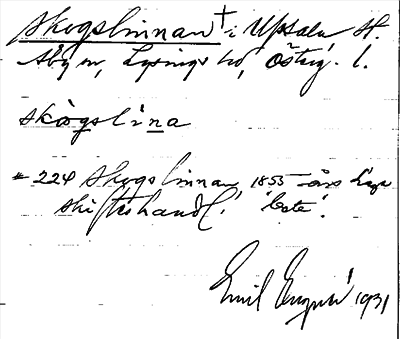 Skogslinnan † i Uppsala st.
Åby sn, Lysings hd, Östrg. l.
skògslìna
224 Skogslinnan, 1855 års Laga
skifteshandl. "bete".
Emil 1931